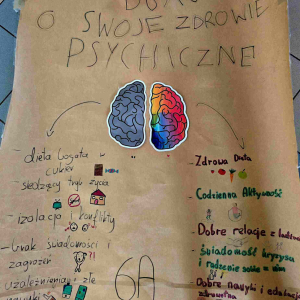 O SWOJE ZDROWIE
PSYCHICZNE
- dieta bogata w cukier
- siedzący tryb życia
- izolacja i konflikty
- brak świadomości i
zagrożeń
uzależnienia
złe
- Zdrowa Dieta
- Codzienna Aktywność
- Dobre relacje z
- świadomość kryzysu
i radzenie sobie z nim
Dobre nawyki i
6A